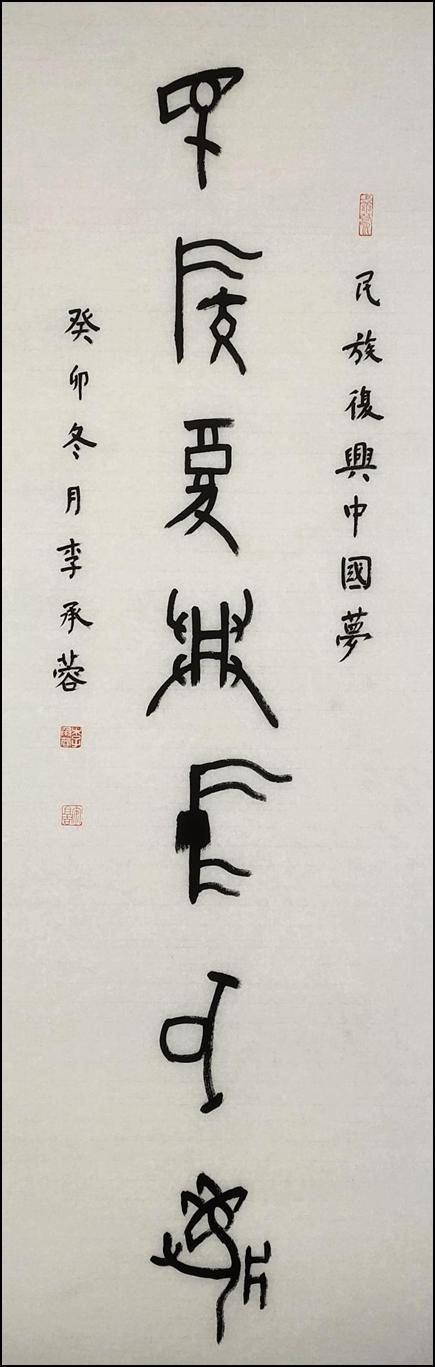 民族復興中國夢
民族復興中國夢
癸卯冬月李承蓉